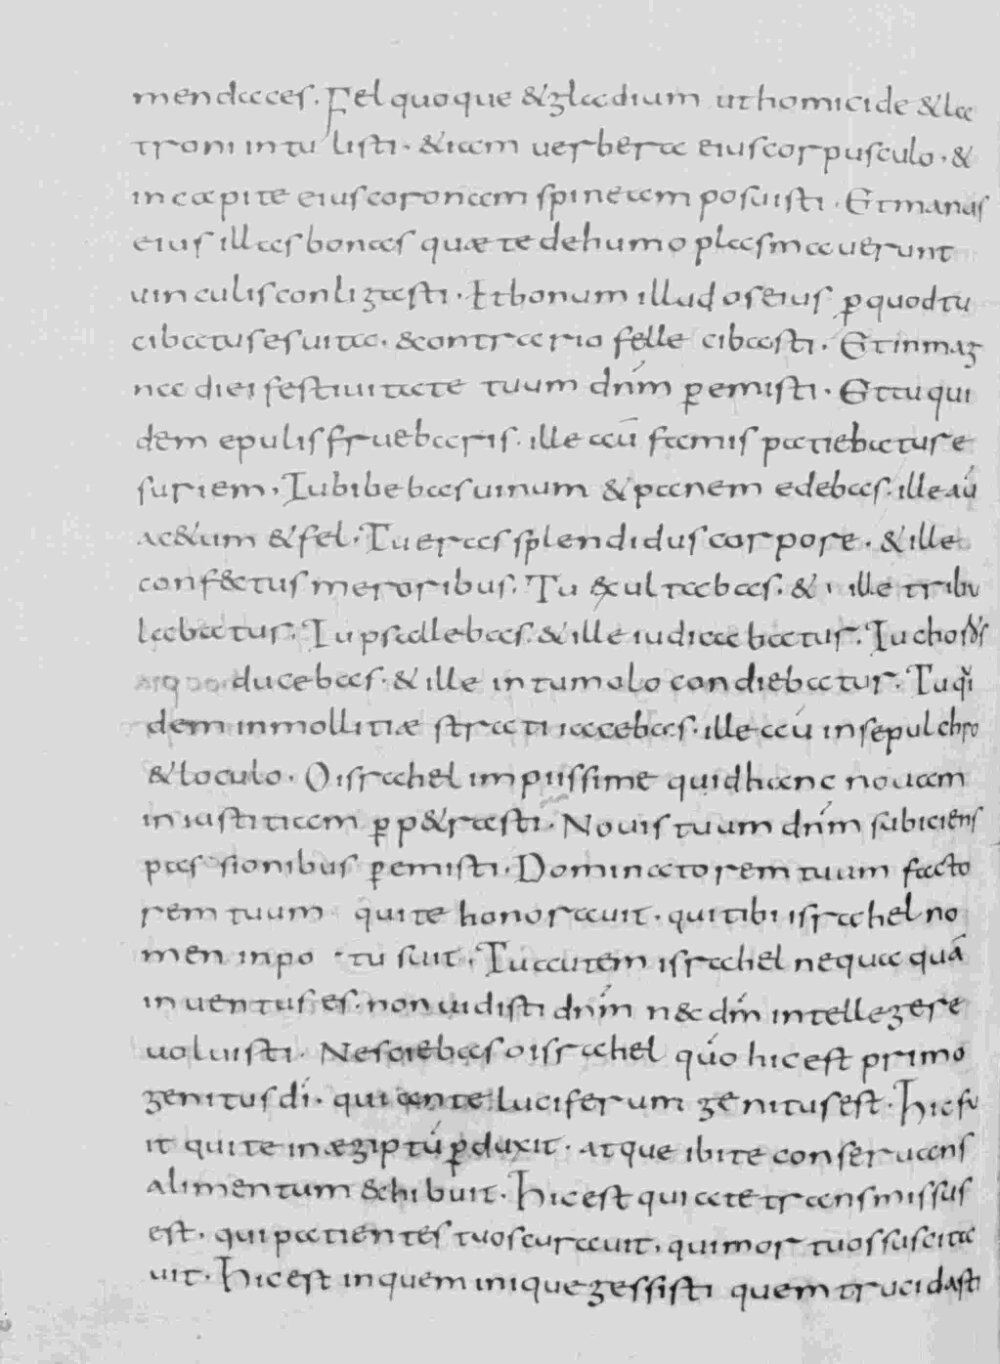 mendaces. Fel quoque & gladium ut homicide & la
troni intulisti. &iam uerbera eius corpusculo. &
in capite eius coronam spineam posuisti. Et manus
eius illas bonas quæ te de humo plasmauerunt
uinculis conligasti. Et bonum illud os eius p quod tu
cibatus es uita. & contrario felle cibasti. Et in mag
na diei festiuitate tuum dnm pemisti. Et tu qui
dem epulis fruebaris. ille au famis patiebatur e
suriem. Tu bibebas uinum & panem edebas. ille au
ac&um & fel. Tu eras splendidus corpore. & ille
conf&tus meroribus. Tu exultabas. & ille tribu
labatur. Tu psallebas. & ille iudicabatur. Tu chorus
ducebas. & ille in tumolo condiebatur. Tu qi
dem in mollitiæ strati iacebas. ille au in sepulchro
& loculo. O israhel impiissime quid hanc nouam
iniustitiam p p&rasti. Nouis tuum dnm subiciens
passionibus pemisti. Dominatorem tuum facto
rem tuum qui te honorauit. qui tibi israhel no
men inpo tu suit. Tu autem israhel nequaquā
inuentus es. non uidisti dnm n& dm intellegere
uoluisti. Nesciebas o israhel quo hic est primo
genitus di. qui ante luciferum genitus est. Hic fu
it qui te in ægiptū pduxit. atque ibi te conseruans
alimentum &hibuit. Hic est qui a te transmissus
est. qui patientes tuos curauit. qui mortuos suscita
uit. Hic est in quem inique gessisti quem trucidasti